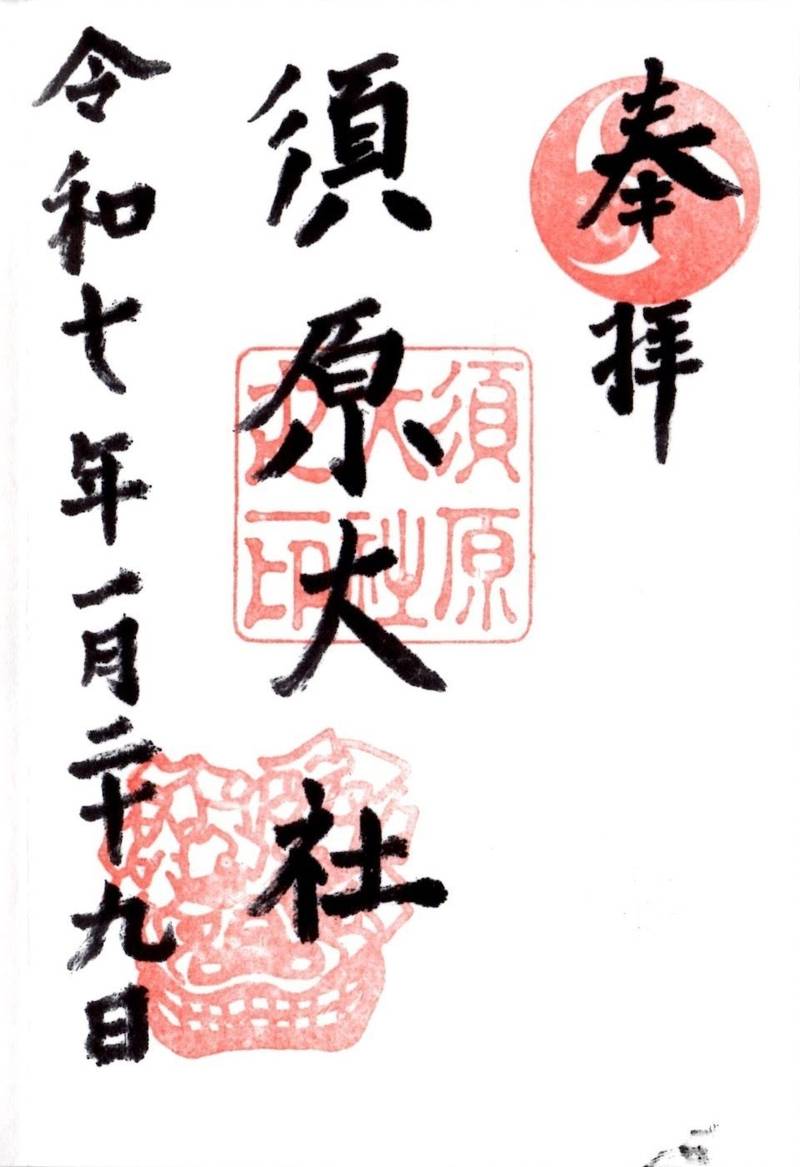 奉拝
須原大社
須原
大社
之印
令和七年一月二十九日